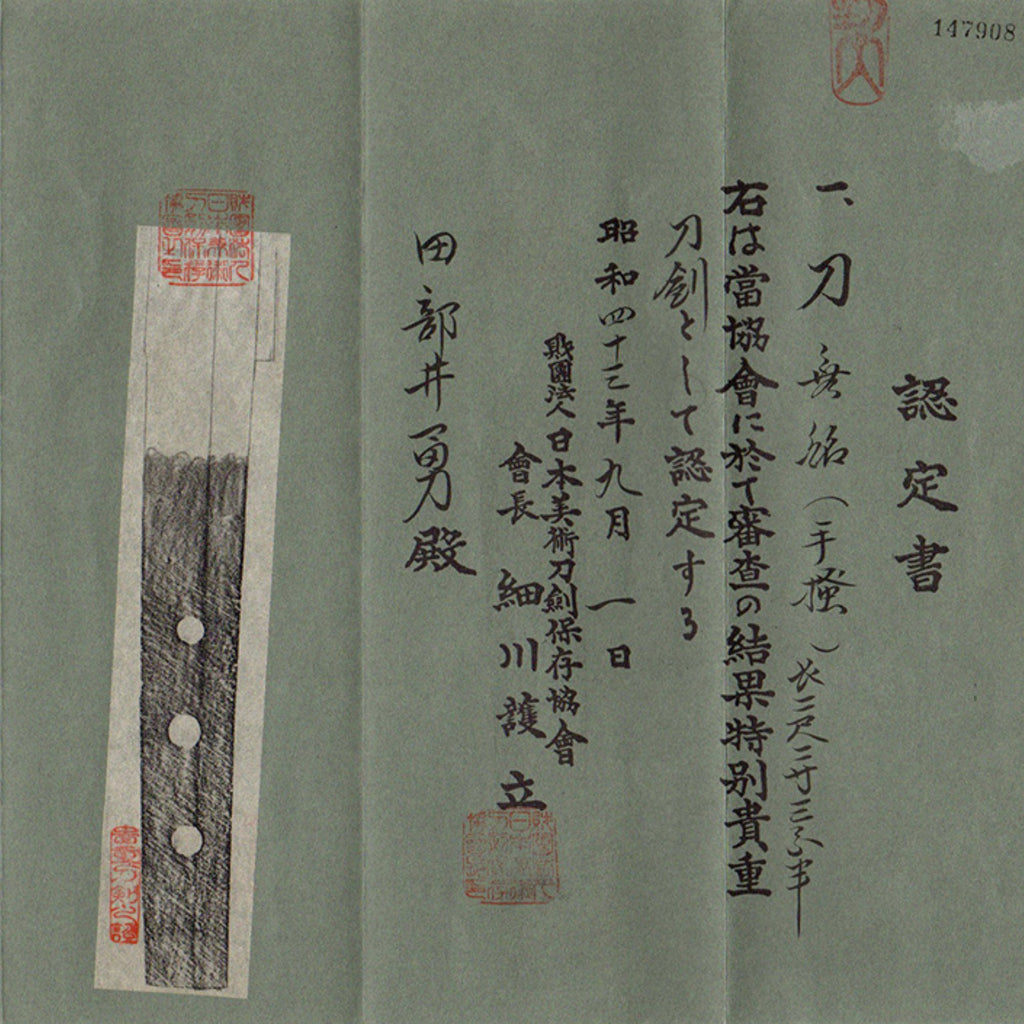 147908
認定書
一、刀 無銘（手掻）長二尺二寸三分半
右は當協會に於て審査の結果特別貴重
刀劍として認定する
昭和四十三年九月一日
財團法人日本美術刀劍保存協會
會長 細川護立
田部井勇殿